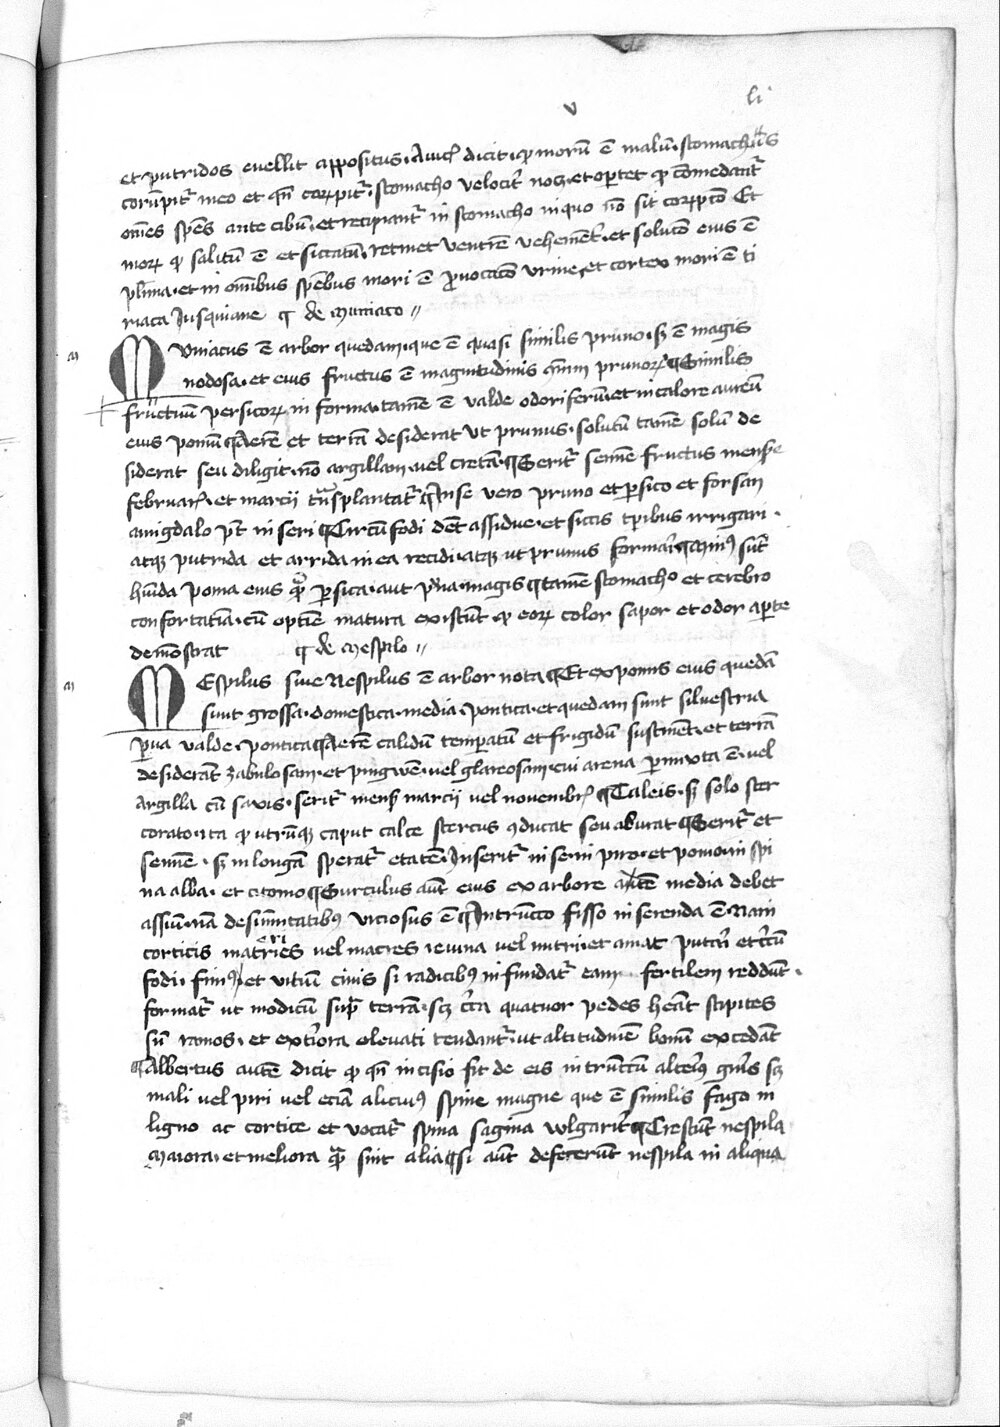 v li
et putridos euellit appositus. Auic̄ dicit. ꝙ morū ē malū. stomachus
corūpit᷑ meo et qn̄ corꝛūpit᷑. stomacho velocit᷑ nocꝫ. et oportet ꝙ comedant᷑
om̄es sp̄es ante cibū. et recipiant᷑ in stomacho in quo nō sit corꝛupcō Et
moꝝ ꝙ salitū ē et siccatū. retinet ventrē vehement᷑. et solucō eius ē
pl̄ima. et in om̄ibus sp̄ebus mori ē ꝓuocacō vrine. et cortex mori ē ti
riaca Jusquiane ¶ de Muniaco //
M Vniacus ē arbor quedam. que ē quasi similis pruno. sꝫ ē magis
nodosa. et eius fructus ē magnitudinis pruноꝝ ¶ Similis
fructuum persicoꝝ in forma. tamē ē valde odoriferū. et in calore aureū
eius pomū ¶ Aerē et terrā desiderat vt prunus. solutū tamē solū de
siderat seu diligit. nō argillam. vel cretā. ¶ Serit᷑ semē fructus mense
februarꝭ. et marcii t̄nsplantat᷑ ¶ Inse vero pruno et ꝑsico et forsan
amigdalo pōt inseri ¶ Circūfodi dēt assidue. et siccis tꝑibus irrigari.
atqꝫ putrida et arrida in ea recidi. atqꝫ vt prunus formari ¶ Minꝰ sūt
hūida poma eius qm̄ ꝑsica. aut p̄na. magis ¶ tamē stomacho et cerebro
confortatīa. cū optīe matura existūt. ꝙ eoꝝ color sapor et odor aperte
demōstrat ¶ de Mespilo //
M Espilus siue Nespilus ē arbor nota ¶ Et ex pomis eius quedā
sunt grossa. domestica. media. pontica. et quedam sunt siluestria
ꝑua valde. pontica ¶ Aerē calidū temꝑatū et frigidū sustinet. et terrā
desiderāt zabulosam. et pingwē. vel glareosam. cui arena ꝑmixta ē. vel
argilla cū saxis. serit᷑ mensꝭ marcii vel nouembrꝭ ¶ Taleis. sꝫ solo ster
corato. ita ꝙ vtrūqꝫ caput talee stercus ꝯducat seu adurat ¶ Serit᷑ et
semē. sꝫ in longā sperat᷑ etatē. Inserit᷑ in se. in piro. et pomo. in spi
na alba. et citomo ¶ Surculus aūt eius ex arbore autē media debet
assumi. nā de sūmitatibꝰ viciosus ē ¶ In trunco fisso inserenda ē. Nam
corticis matries vel macies ieiuna vel nutrit. et amat putari et cc̄ū
fodi. fimꝰ et vitiū cinis si radicibꝰ infundat᷑ eam. fertilem reddūt.
format᷑ vt modicū sup̄ terrā. sꝫ cc̄a quatuor pedes hēat stipites
sn̄ ramos. et extīora eleuati tendant᷑. vt altitudinē bonū excedāt
¶ Albertus autē dicit ꝙ qn̄ incisio fit de eis in trūcū alteriꝰ gn̄is sꝫ
mali vel piri vel eciā alicuiꝰ spine magne que ē similis fago in
ligno ac cortice et vocat᷑ spina sagina wlgarit᷑ ¶ Crescūt nespila
Maiora. et meliora qm̄ sint alia ¶ si aūt defecerūt nespila in aliqua